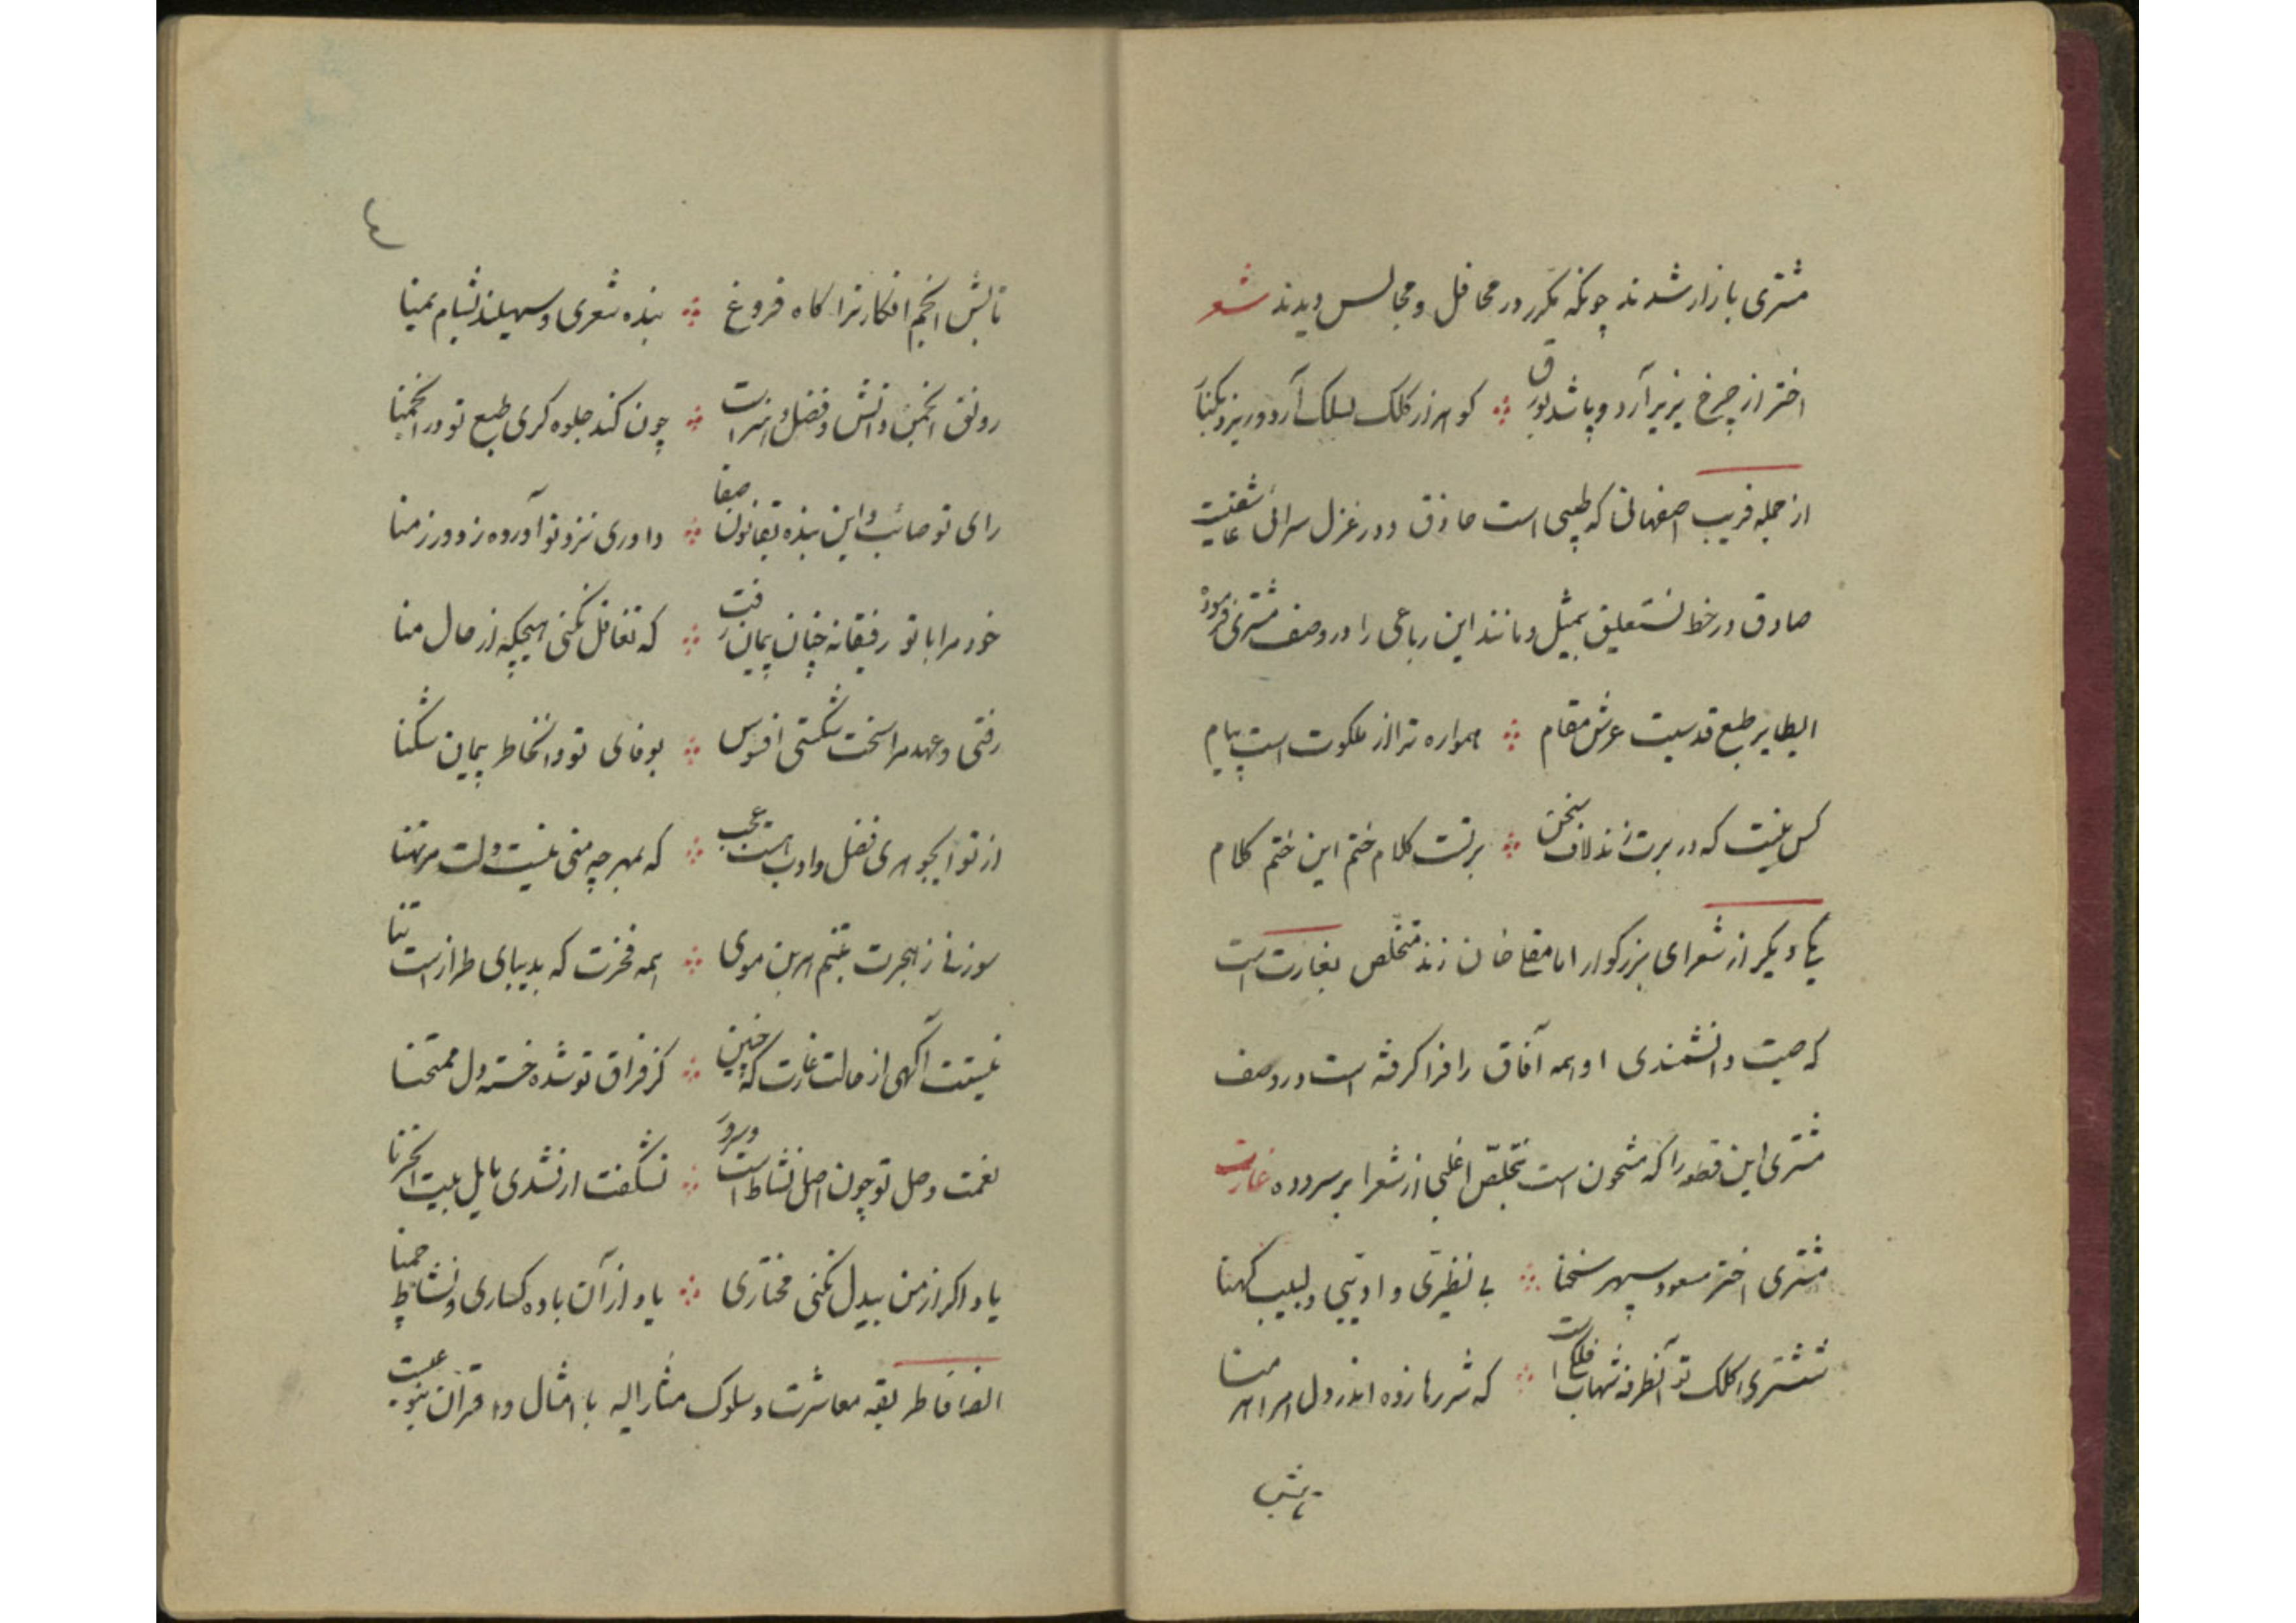 مشتری بازار شدند چونکه مکرر در محافل و مجالس دیدند شعر
اختر از چرخ بزیر آرد و پاشد بورق ∴ کوهر از کلک بسلک آرد و ریزد بکنار
از جمله فریب اصفهانی که طبیبی است حاذق و در غزل سرائی عاشقیت
صادق در خط نستعلیق بمثیل و مانند این رباعی را در وصف مشتری فرموده
ایطایر طبع قدسیت عرش مقام ∴ همواره ترا از ملکوت است پیام
کس نیست که در برت زند لاف سخن ∴ برتست کلام ختم این ختم کلام
یکی دیکر از شعرای بزرکوار امامقلی خان زند متخلص بغارت است
که صیت دانشمندی او همه آفاق را فرا کرفته است در وصف
مشتری این قطعه را که مشحون است بتخلّص اغلبی از شعرا بر سروده غارت
مشتری اختر مسعود سپهر سخنا ∴ بی نظیری و ادیبی و لبیب کهنا
مشتری کلک تو آنطرفه شهاب فلک است ∴ که شررها زده اندر دل اهریمنا
تابش
٤
تابش انجم افکار ترا کاه فروغ ∴ بنده شعری و سهیلند بشام یمنا
رونق انجمن دانش و فضل و هنر است ∴ چون کند جلوه کری طبع تو در انجمنا
رای تو صائب و این بنده بقانون صفا ∴ داوری نزد تو آورده ز دور زمنا
خود مرا با تو رفیقانه چنان پیمان رفت ∴ که تغافل نکنی هیچکه از حال منا
رفتی و عهد مرا سخت شکستی افسوس ∴ بوفای تو و آنخاطر پیمان شکنا
از تو ایجوهری فضل و ادب هست عجب ∴ که بمهر چو منی نیست دلت مرتهنا
سوزنی ز هجرت بتنم هر بن موی ∴ همه فخرت که بدیبای طراز است تنا
نیستت آکهی از حالت غارت که چنین ∴ کز فراق تو شده خسته دل ممتحنا
نعمت وصل تو چون اصل نشاط است و سرور ∴ نشکفت ار نشدی مایل بیت الحزنا
یاد اکر از من بیدل نکنی مختاری ∴ یاد از آن باده کساری و نشاط چمنا
ایضا فاطریقه معاشرت و سلوک مشارالیه با امثال و اقران بنوعیست